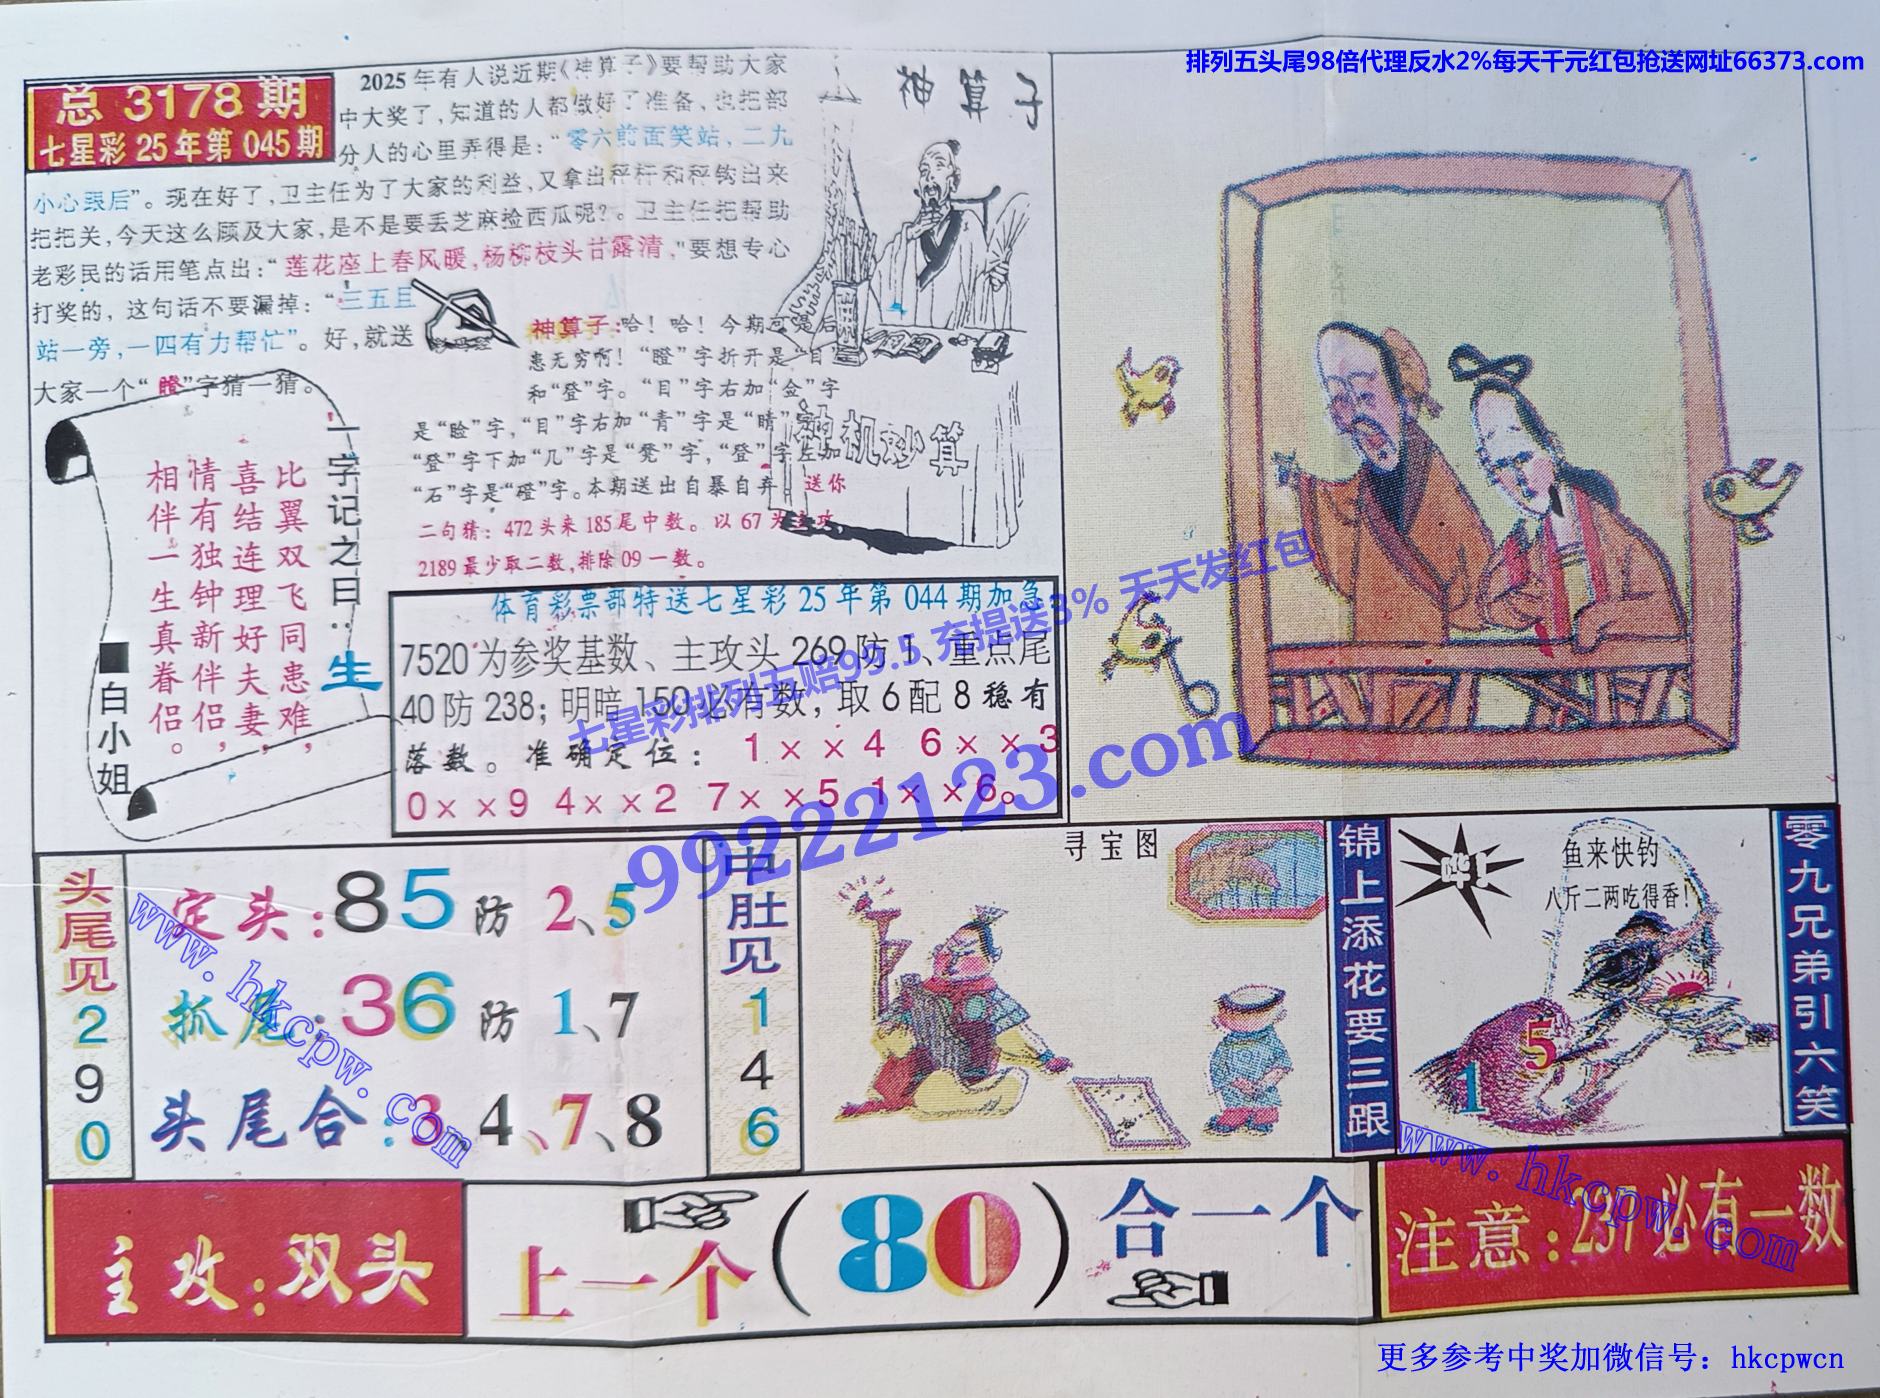 排列五头尾98倍代理反水2%每天千元红包抢送网址66373.com
总 3178 期
七星彩25年第045期
2025年有人说近期《神算子》要帮助大家
中大奖了，知道的人都做好了准备，也把部
分人的心里弄得是：“零六前面笑站，二九
小心跟后”。现在好了，卫主任为了大家的利益，又拿出秤杆和秤钩出来
把把关，今天这么顾及大家，是不是要丢芝麻捡西瓜呢？。卫主任把帮助
老彩民的话用笔点出：“莲花座上春风暖，杨柳枝头甘露清，”要想专心
打奖的，这句话不要漏掉：“三五且
站一旁，一四有力帮忙”。好，就送
大家一个“瞪”字猜一猜。
神算子
神算子：哈！哈！今期可是后
患无穷啊！“瞪”字折开是“目”
和“登”字。“目”字右加“佥”字
是“睑”字，“目”字右加“青”字是“睛”字，
“登”字下加“几”字是“凳”字，“登”字左加
“石”字是“磴”字。本期送出自暴自弃。送你
二句猜：472头来185尾中数。以67为主攻，
2189最少取二数，排除09一数。
神机妙算
一字记之曰：生
比翼双飞同患难，
喜结连理好夫妻，
情有独钟新伴侣，
相伴一生真眷侣。
■白小姐
体育彩票部特送七星彩25年第044期加急
7520为参奖基数、主攻头269防1、重点尾
40防238；明暗150必有数，取6配8稳有
落数。准确定位：1××4 6××3
0××9 4××2 7××5 1××6。
七星彩排列五赔99.5 充提送3% 天天发红包
99222123.com
头尾见290
定头：85防2、5
抓尾：36防1、7
头尾合：3、4、7、8
中肚见146
寻宝图
锦上添花要三跟
哗！
鱼来快钓
八斤二两吃得香！
1
5
零九兄弟引六笑
主攻：双头
上一个（80）合一个
注意：237必有一数
www.hkcpw.com
www.hkcpw.com
更多参考中奖加微信号：hkcpwcn